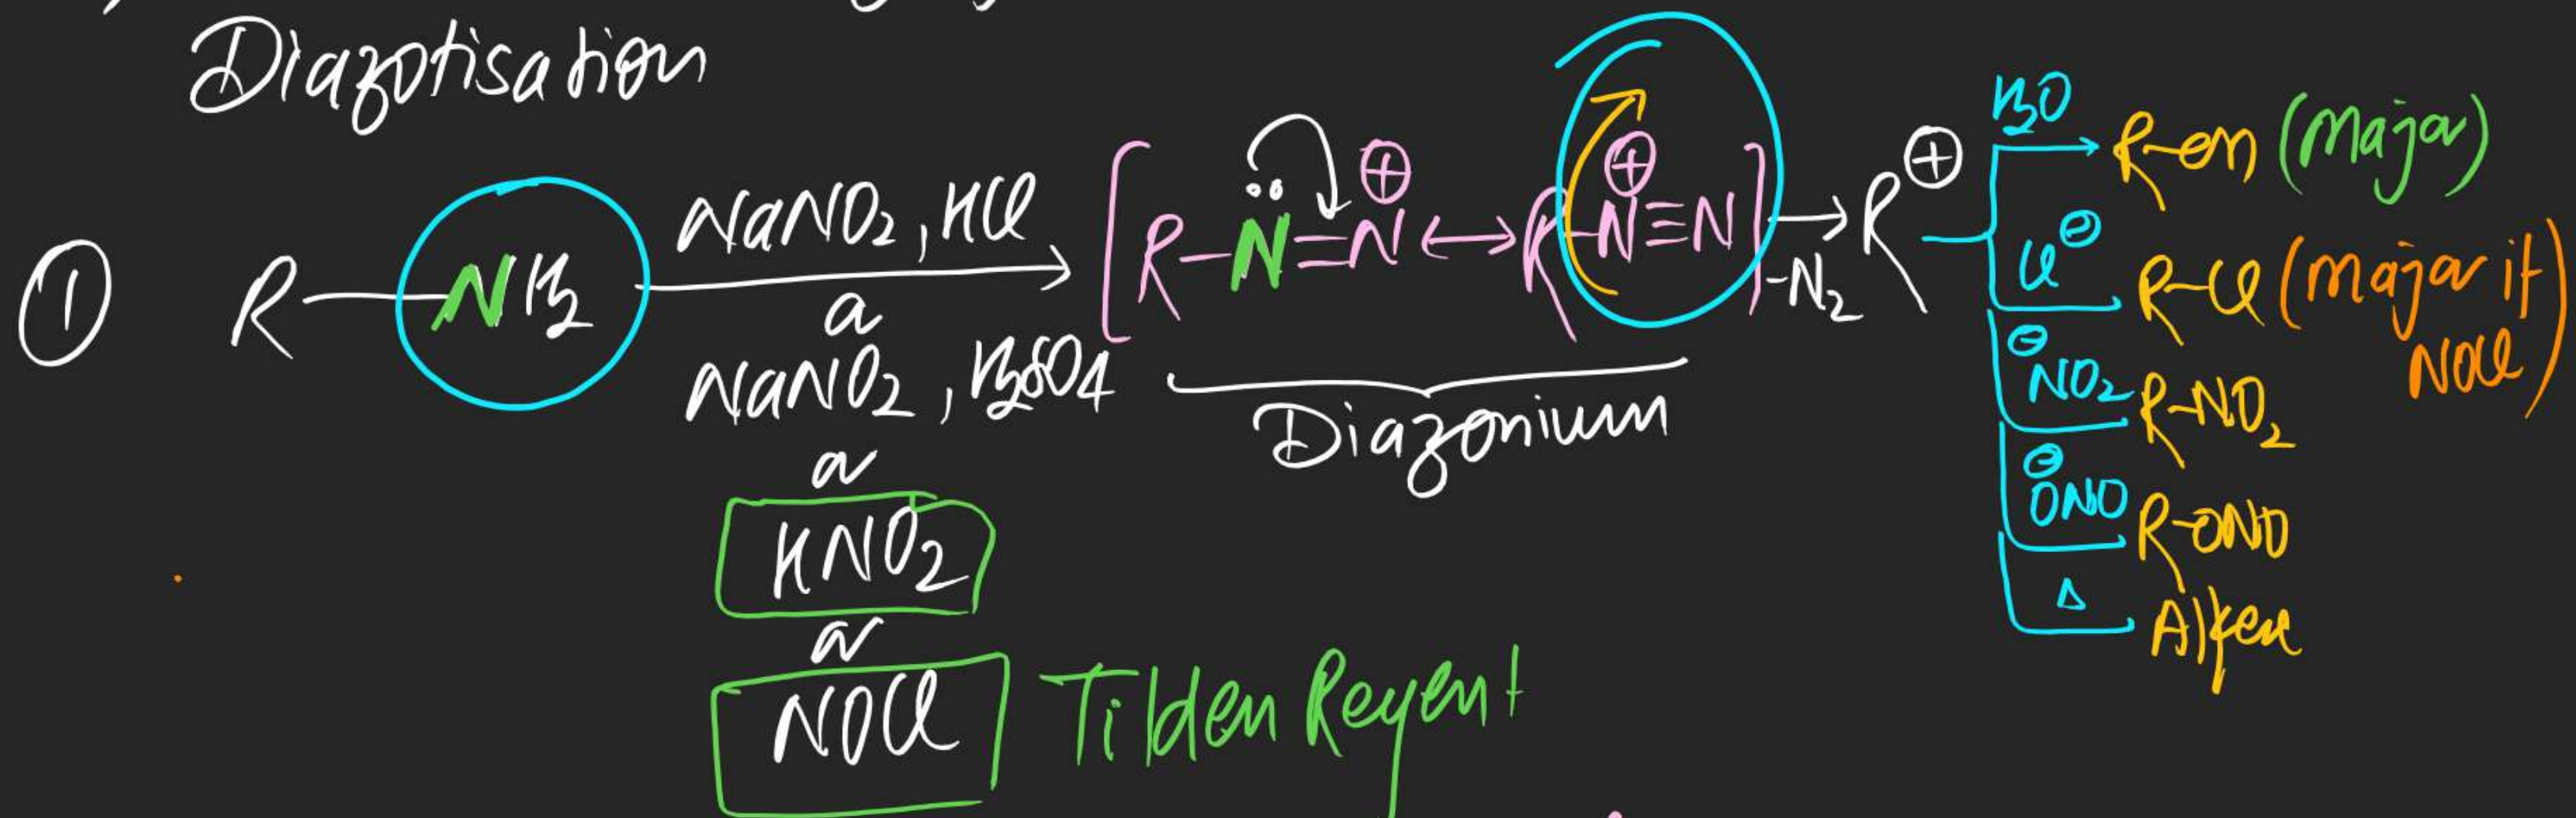 Diazotisation
① R-NH2 NaNO2, HCl [R-N̈=N⊕ ↔ R-N⊕≡N] → -N2 R⊕
or
NaNO2, H2SO4
or
HNO2
or
NOCl Tilden Reagent
Diazonium
H2O R-OH (Major)
Cl⊖ R-Cl (Major if NOCl)
⊖NO2 R-NO2
⊖ONO R-ONO
Δ Alkene